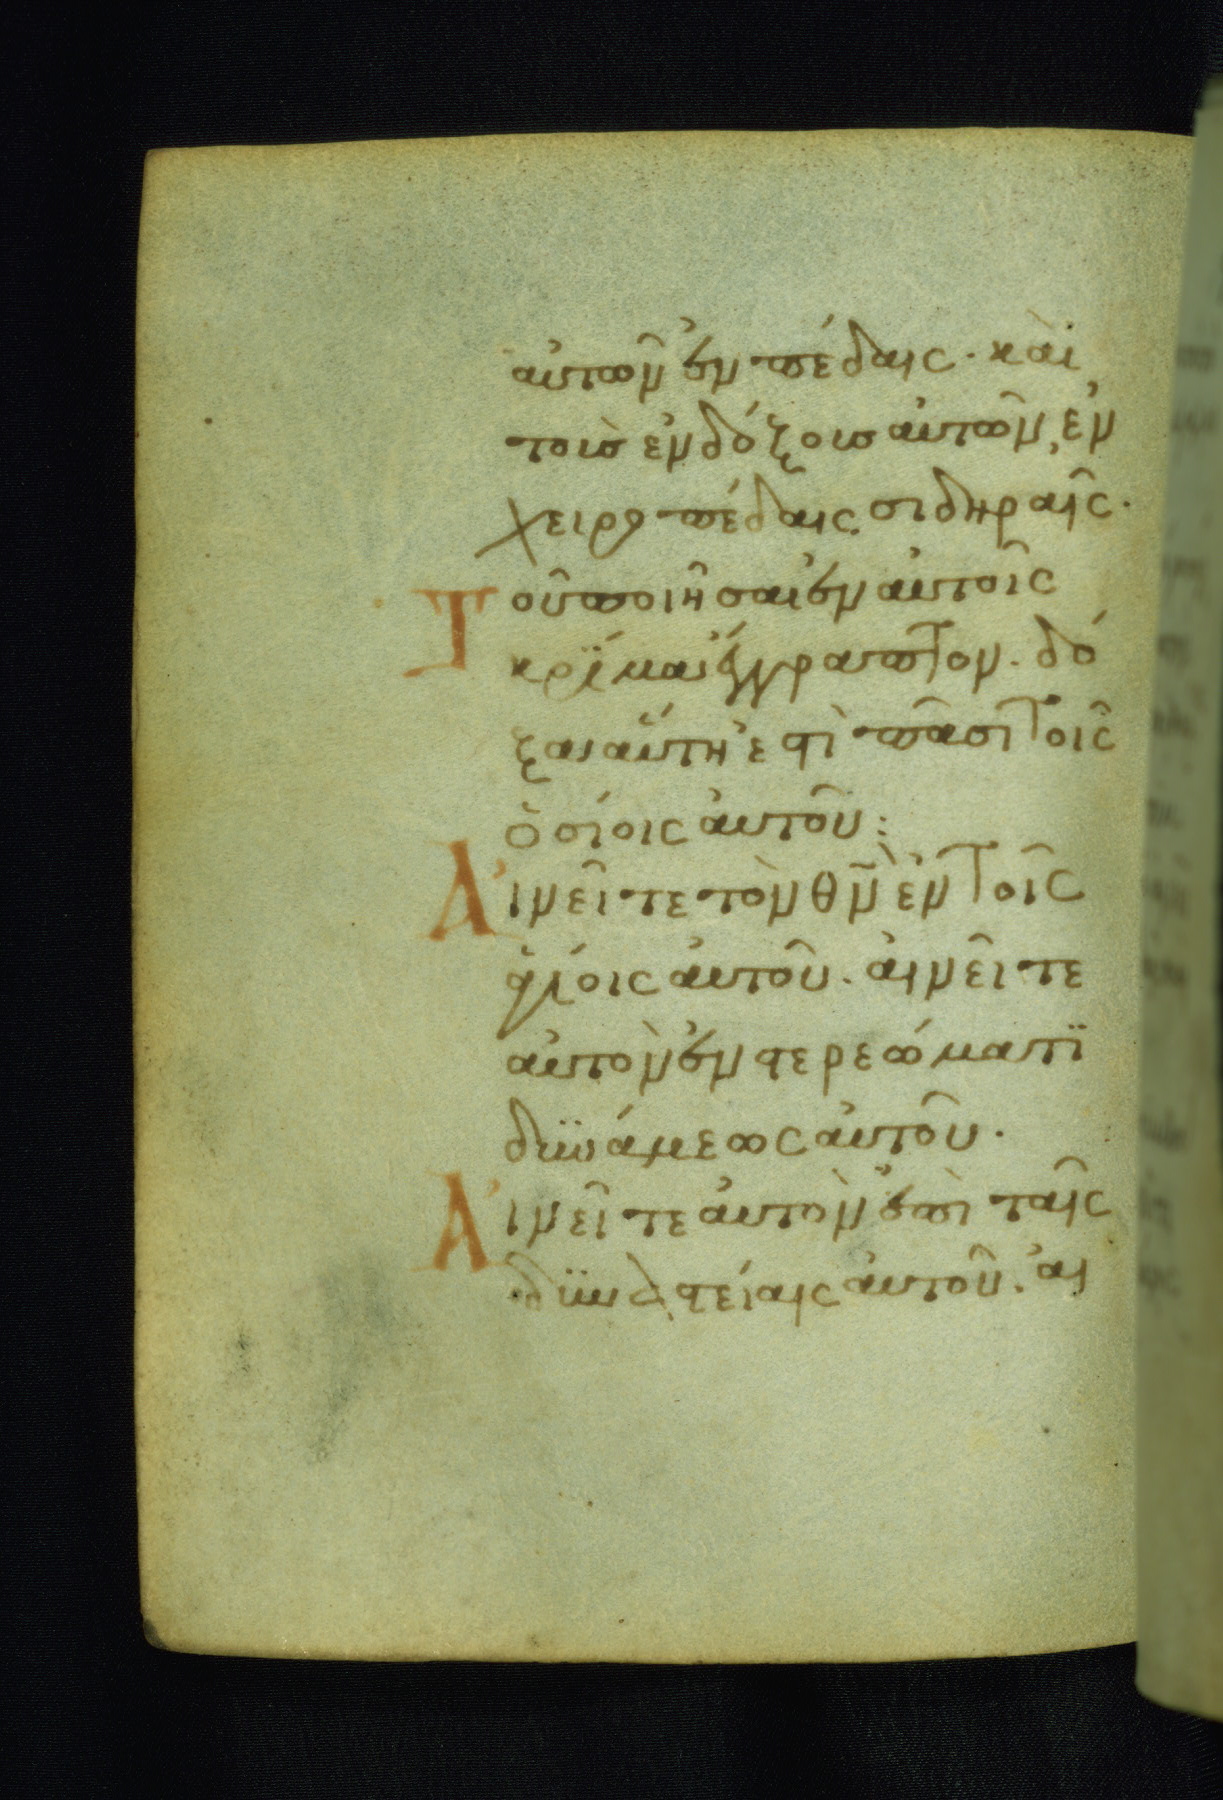 αὐτῶν ἐν πέδαις· καὶ
τοὺσ ἐνδόξουσ αὐτῶν, ἐν
χειροπέδαις σιδηραῖς·
Τοῦ ποιῆσαι ἐν αὐτοῖς
κρῖμα ἔγγραπτον· δό
ξα αὕτη ἐστὶ πᾶσι τοῖς
ὁσίοις αὐτοῦ:
Αἰνεῖτε τὸν θν ἐν τοῖς
ἁγίοις αὐτοῦ· αἰνεῖτε
αὐτὸν ἐν στερεώματϊ
δϋνάμεως αὐτοῦ·
Αἰνεῖτε αὐτὸν ἐπὶ ταῖς
δϋναστείαις αὐτοῦ· αἰ